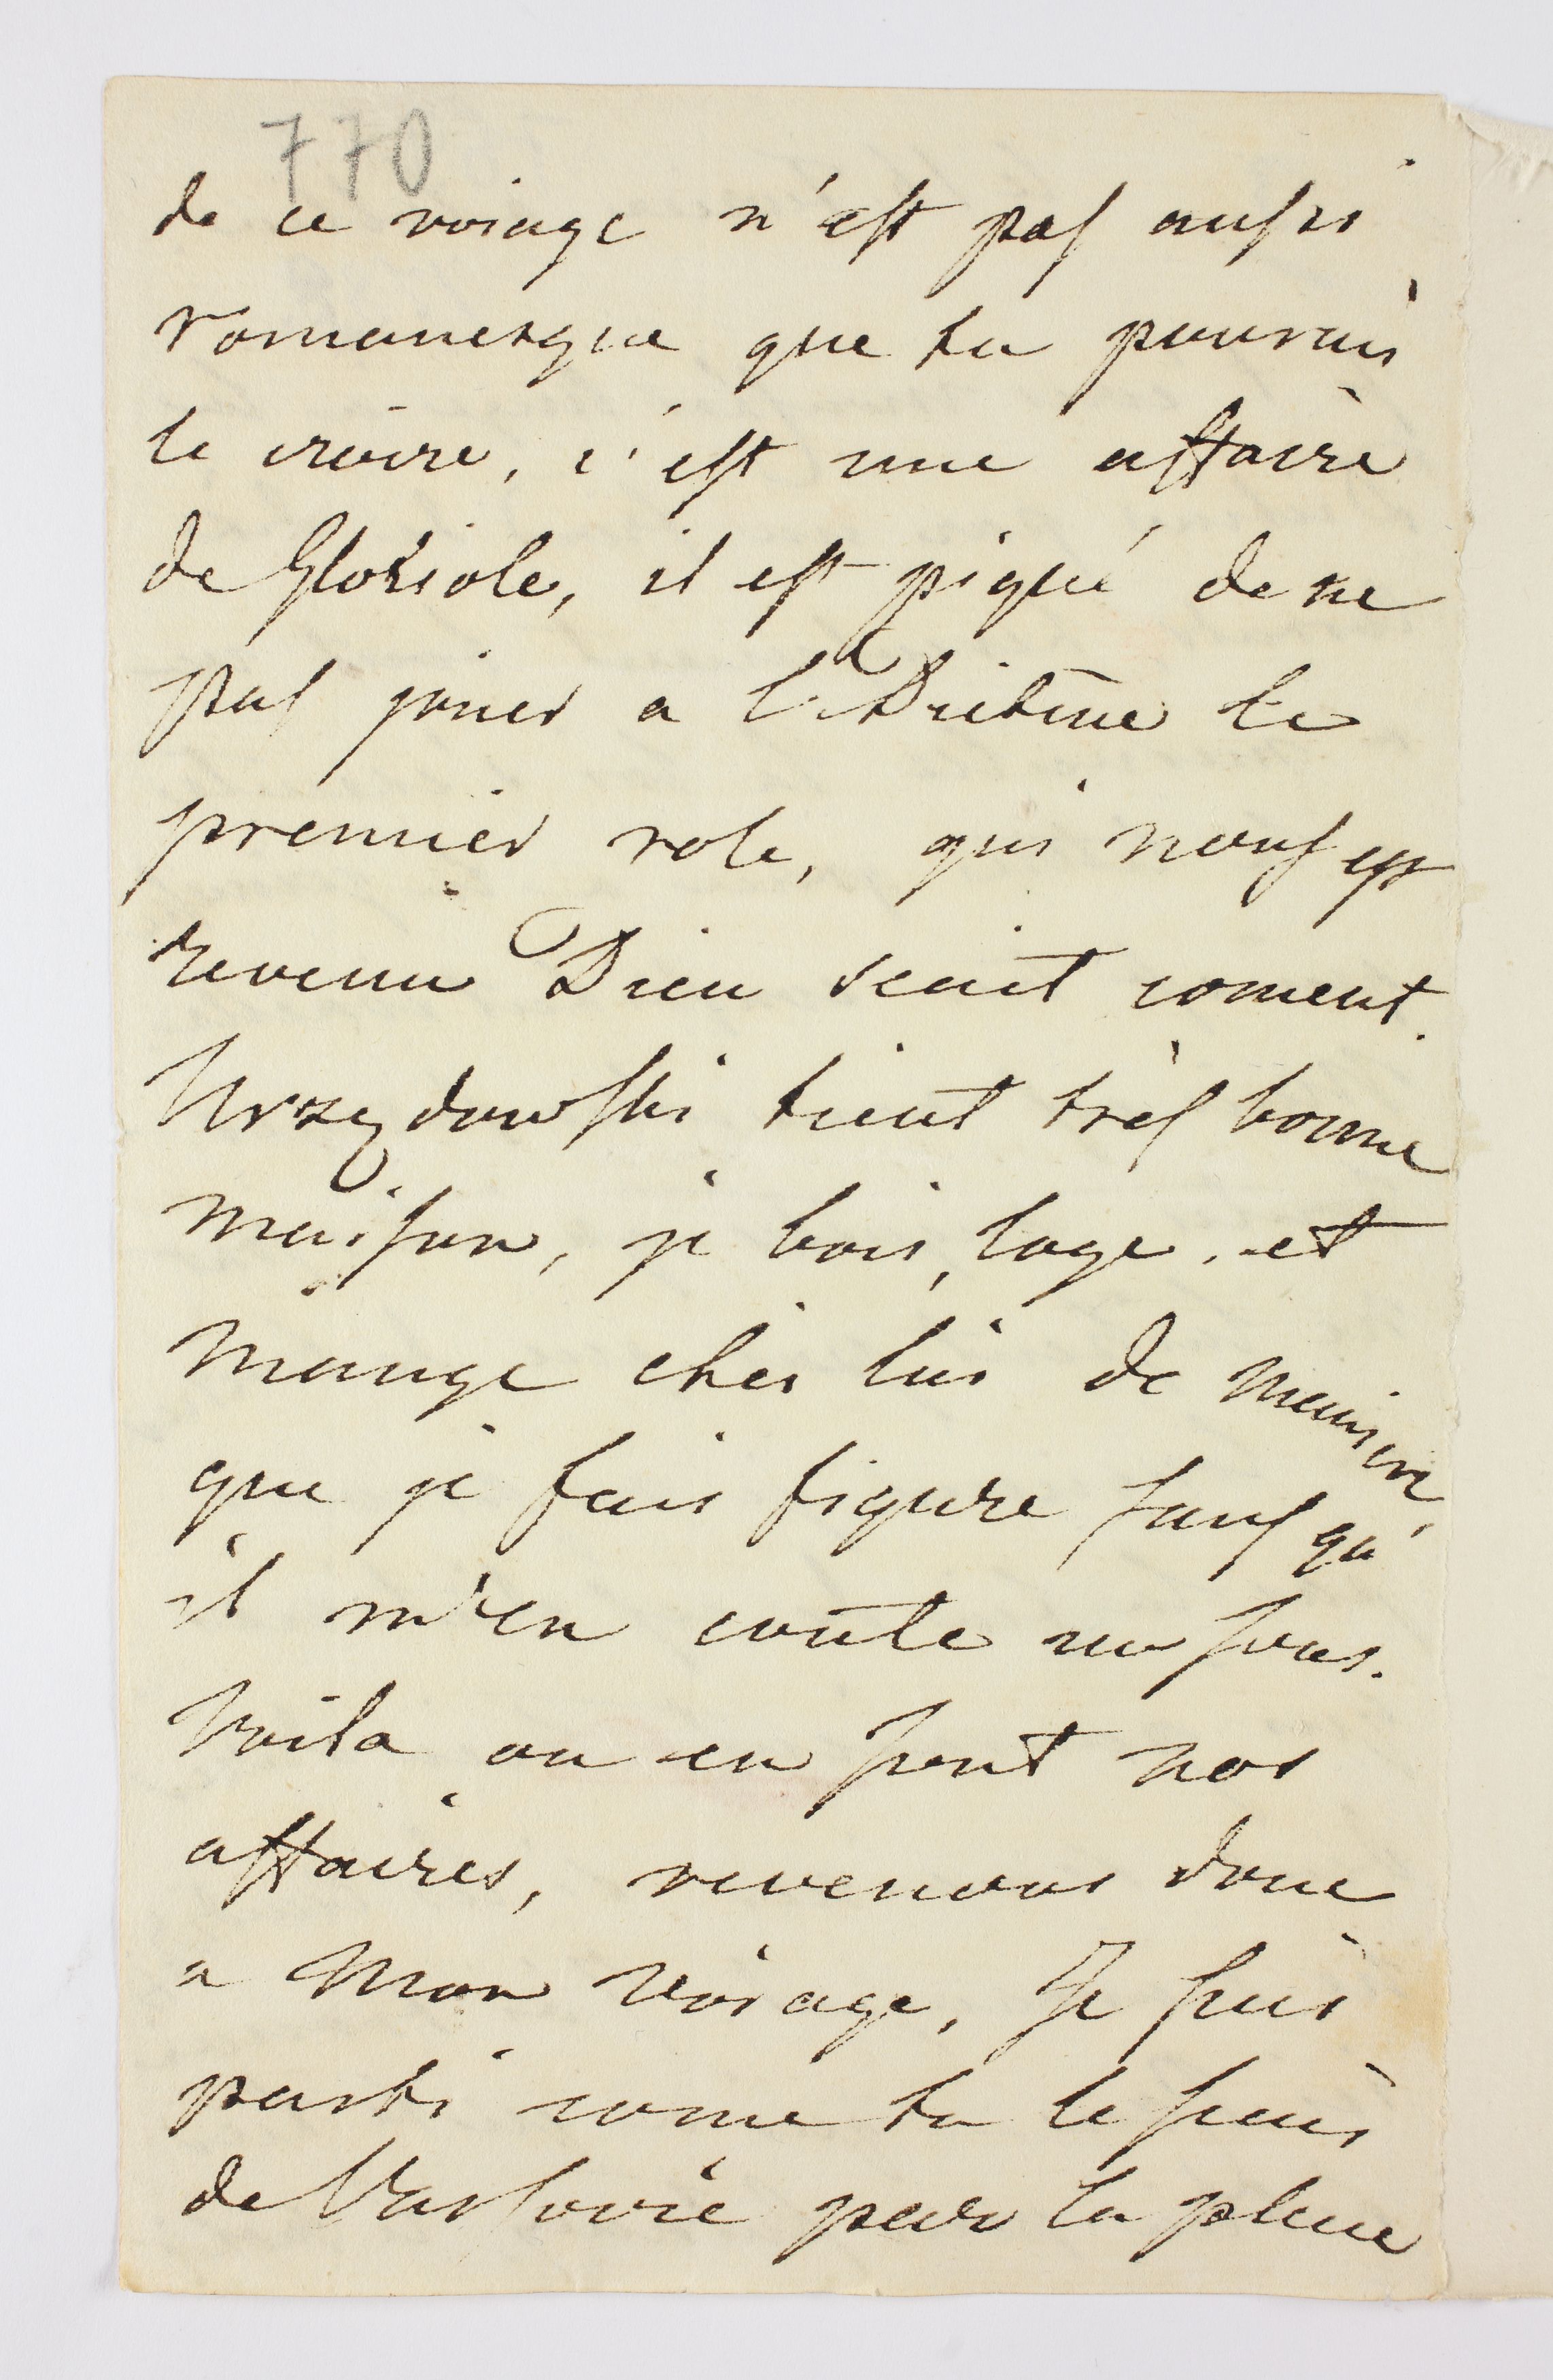 770
de ce voiage n'est pas aussi
romanesque que tu pourais
le croire, c'est une affaire
de Gloriole, il est piqué de ne
pas jouer a la Dietine le
premier role, qui nous est
revenu Dieu scait coment.
Urzędowski tient très bonne
maison, je bois, loge, et
mange chés lui de maniere,
que je fais figure sans qu'
il m'en coute un sous.
Voila ou en sont nos
affaires, revenons donc
a Mon Voiage, Je suis
parti come tu le sçais
de Varsovie par la pluie